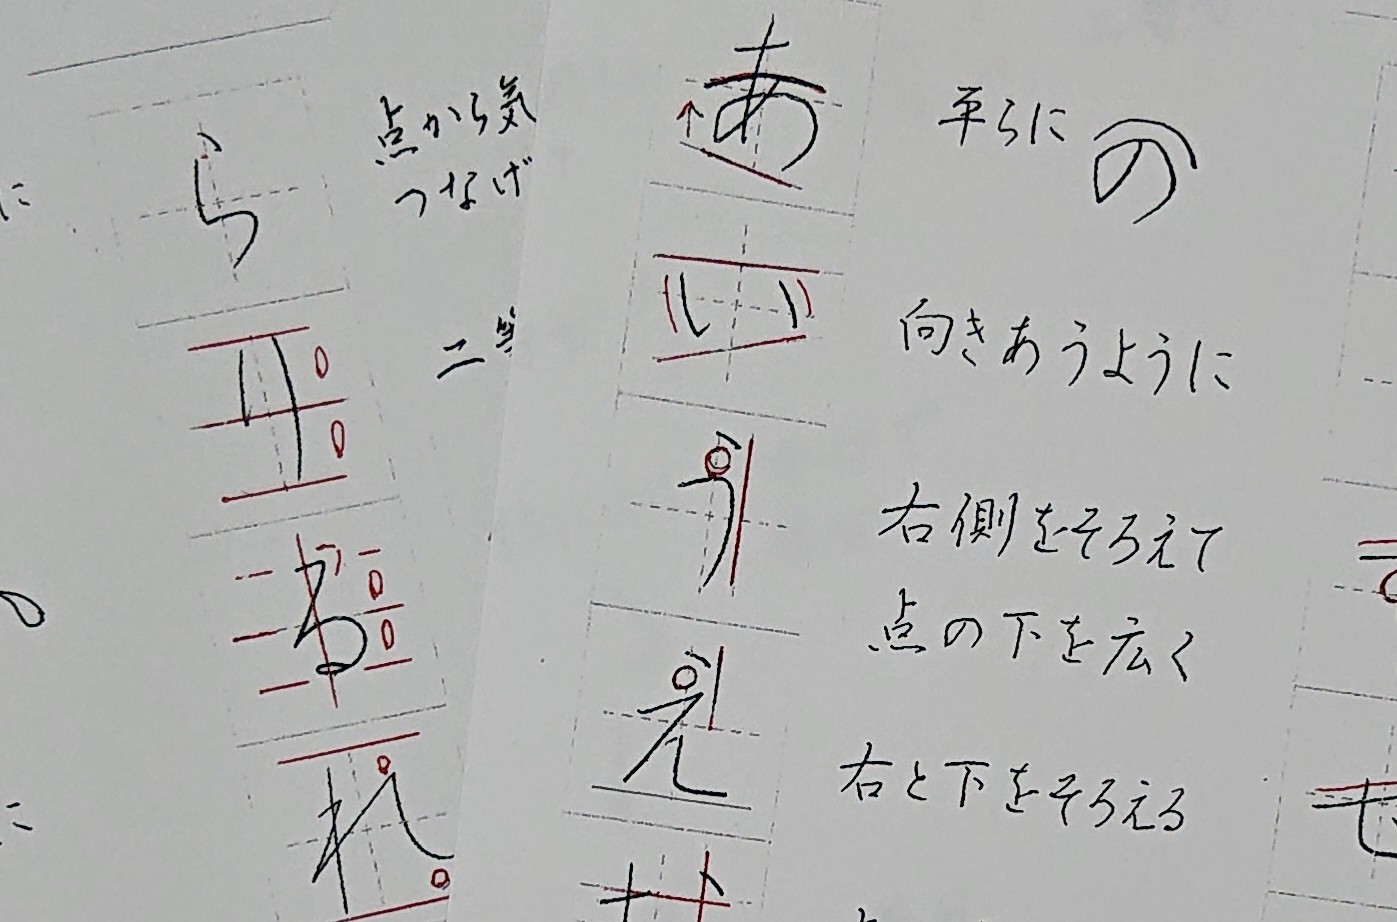 ら
点から気
つなげ
り
二等
る
れ
に
に
あ
平らに の
い
向きあうように
う
右側をそろえて
点の下を広く
え
右と下をそろえる